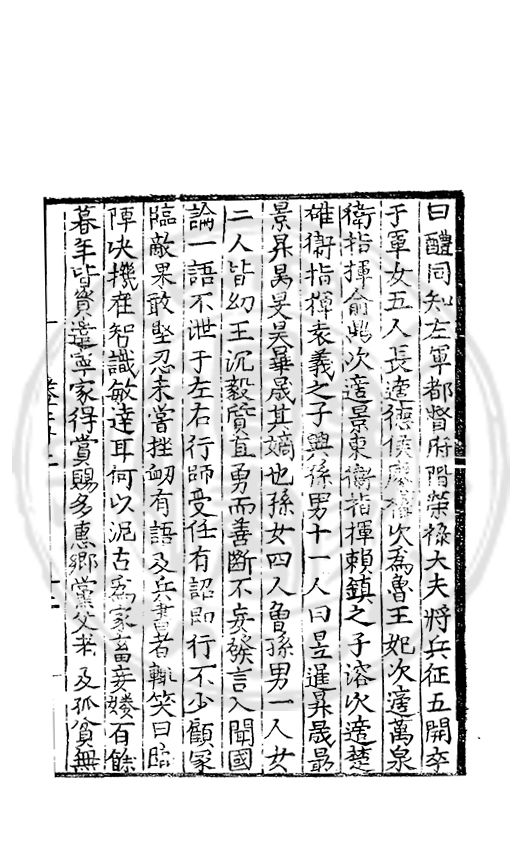 曰醴同知左軍都督府階榮祿大夫將兵征五開卒
于軍女五人長適德侯次為魯王妃次適萬泉
衛指揮俞鼎次適景東衛指揮賴鎮之子溶次適楚
雄衛指揮袁義之子興孫男十一人曰昱暹昇晟勗
景昇昺旻昊曅晟其嫡也孫女四人曾孫男一人女
二人皆幼王沉毅質直勇而善斷不妄發言入聞國
論一語不泄于左右行師受任有詔即行不少顧家
臨敵果敢堅忍未嘗挫衂有語及兵書者輒笑曰臨
陣決機在智識敏達耳何以泥古為家畜妾媵有餘
暮年皆資遣寧家得賞賜多惠鄉黨父老及孤貧無